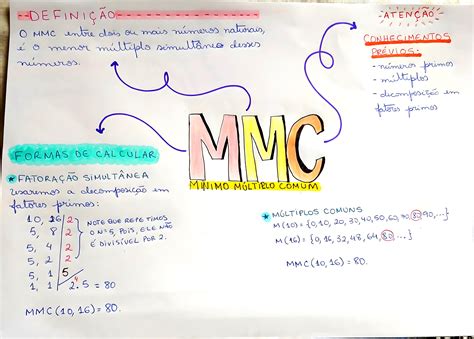 DEFINIÇÃO
O MMC entre dois ou mais números naturais,
é o menor múltiplo simultâneo desses
números.
ATENÇÃO
CONHECIMENTOS
PRÉVIOS:
- números primos
- múltiplos
- decomposição em
fatores primos
MMC
MÍNIMO MÚLTIPLO COMUM
FORMAS DE CALCULAR
* FATORAÇÃO SIMULTÂNEA
usaremos a decomposição em
fatores primos:
10, 16 | 2
5, 8 | 2
5, 4 | 2
5, 2 | 2
5, 1 | 5
1, 1 | 2⁴.5 = 80
NOTE QUE REPETIMOS
O Nº 5, POIS, ELE NÃO
É DIVISÍVEL POR 2.
MMC (10, 16) = 80.
* MÚLTIPLOS COMUNS
M(10) = {0, 10, 20, 30, 40, 50, 60, 70, 80, 90, ...}
M(16) = {0, 16, 32, 48, 64, 80, ...}
MMC (10, 16) = 80.